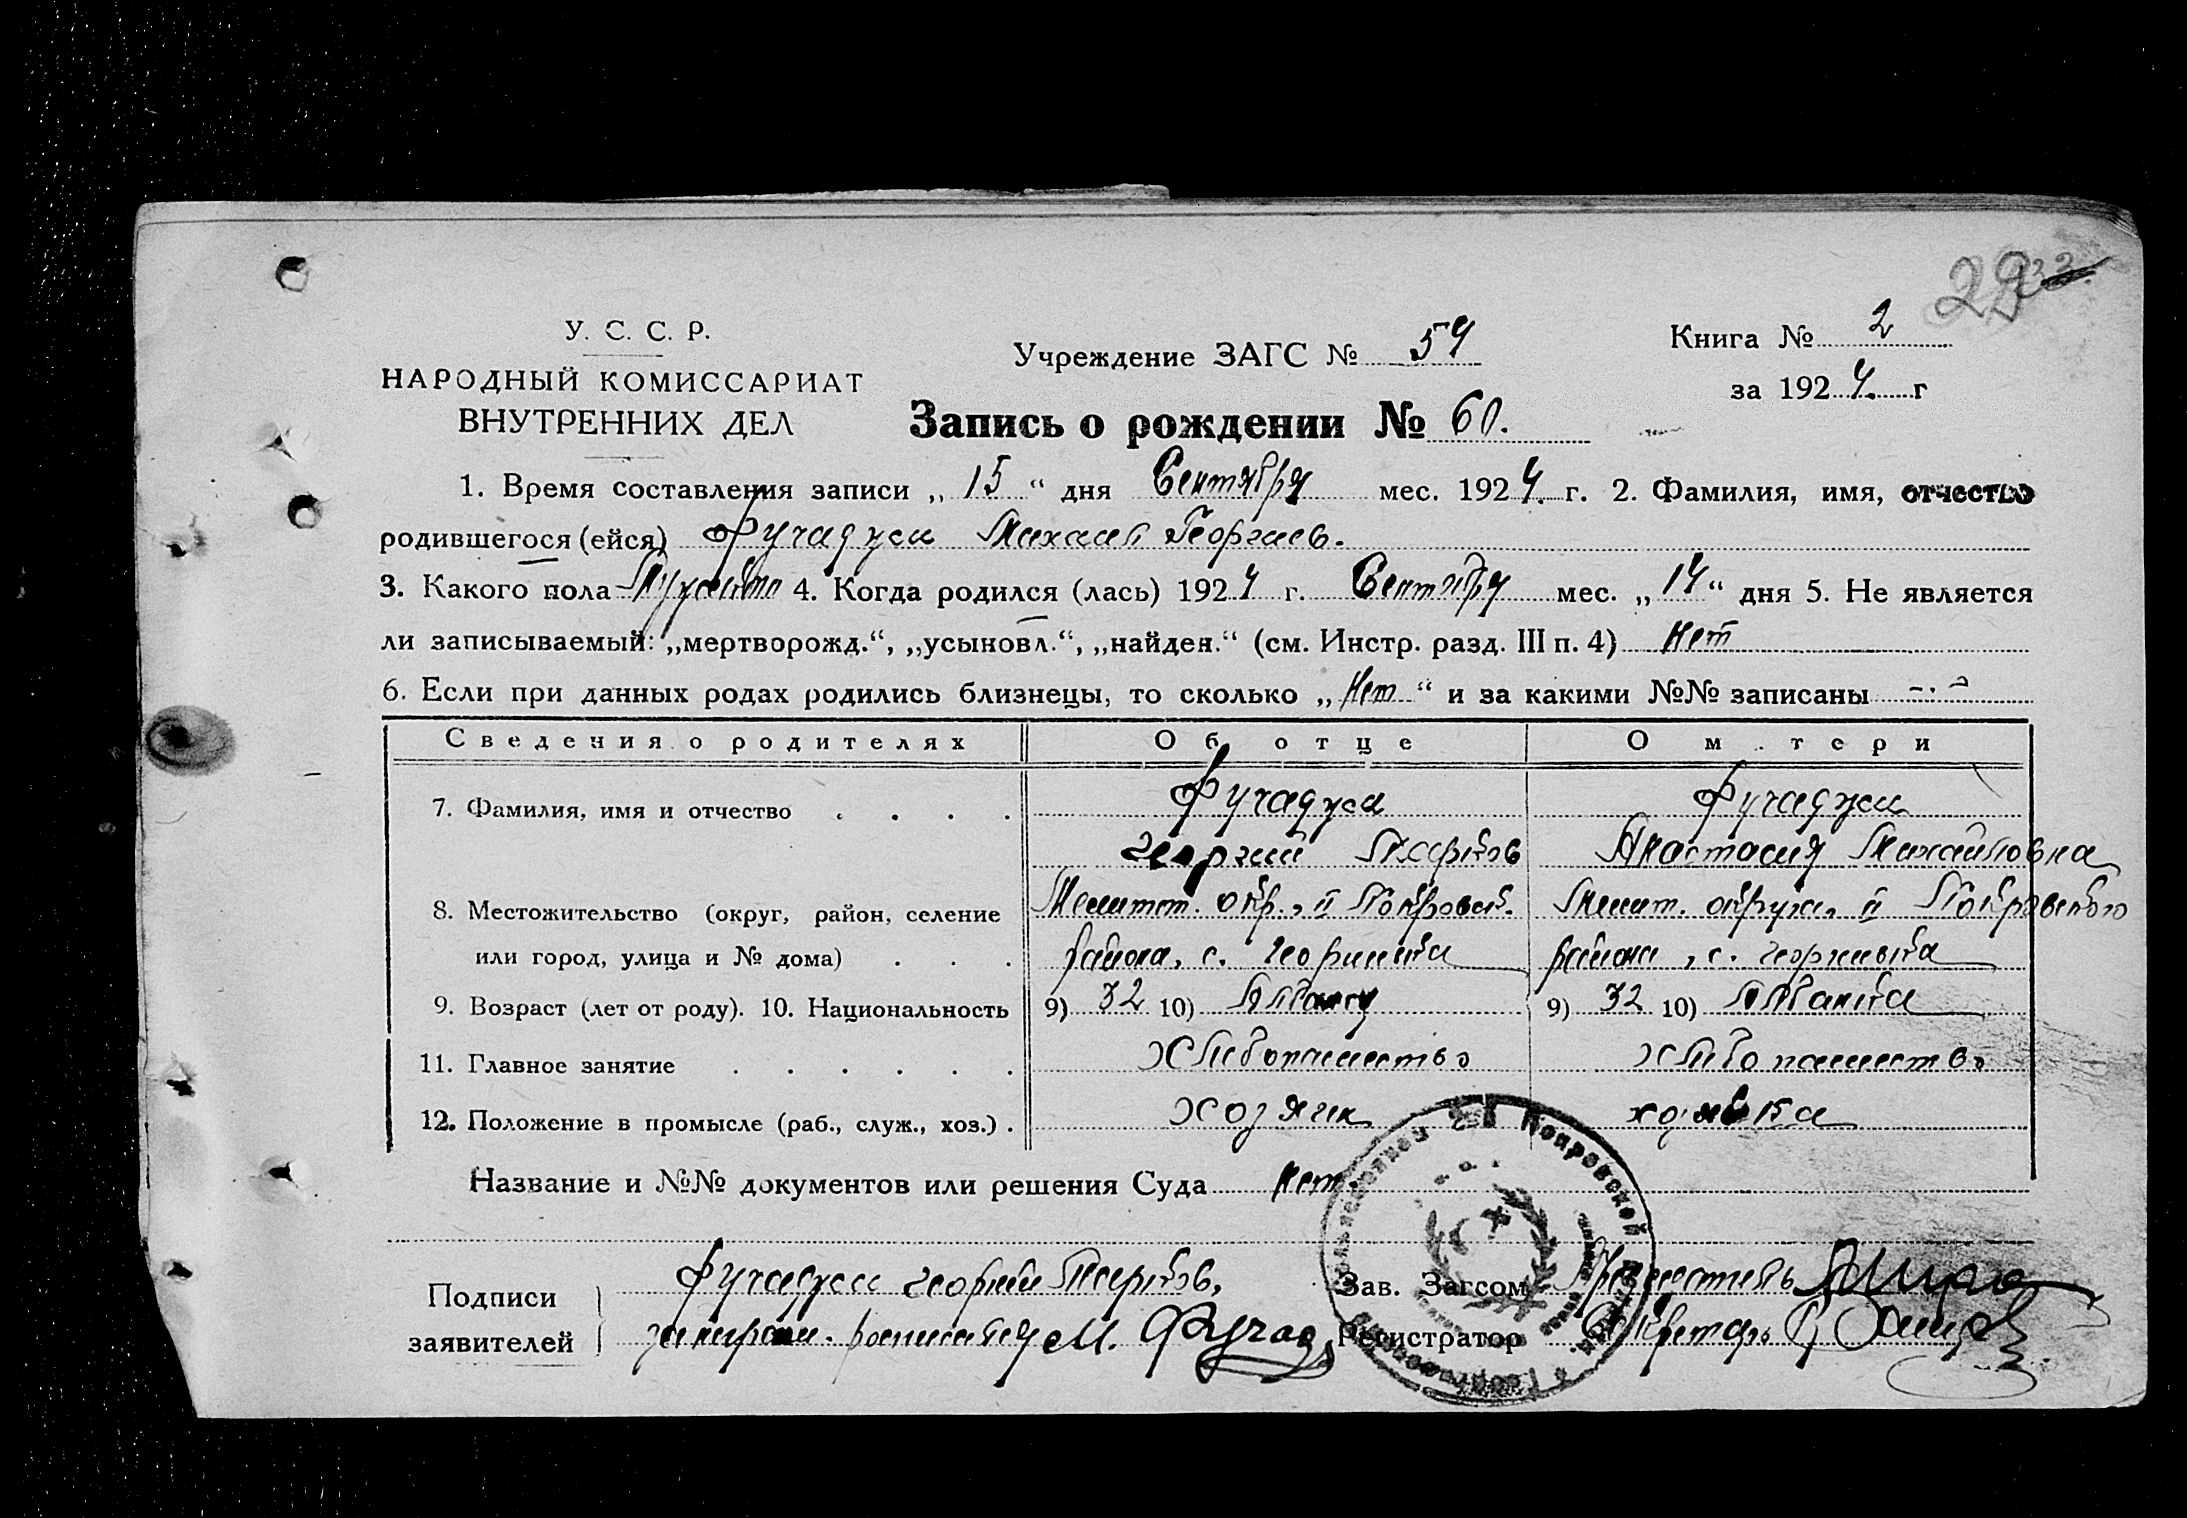 29
У. С. С. Р.
НАРОДНЫЙ КОМИССАРИАТ
ВНУТРЕННИХ ДЕЛ
Учреждение ЗАГС № 54
Книга № 2
за 1924 г
Запись о рождении № 60.
1. Время составления записи „ 15 “ дня Сентября мес. 1924 г. 2. Фамилия, имя, отчество
родившегося (ейся) Фучаджи Михаил Георгиев.
3. Какого пола Мужского 4. Когда родился (лась) 1924 г. Сентября мес. „ 14 “ дня 5. Не является
ли записываемый: „мертворожд.“, „усыновл.“, „найден.“ (см. Инстр. разд. III п. 4) Нет
6. Если при данных родах родились близнецы, то сколько „ Нет “ и за какими №№ записаны
Сведения о родителях Об отце О м тери
7. Фамилия, имя и отчество Фучаджи Фучаджи
Георгий Анастасия Михайловна
8. Местожительство (округ, район, селение Мелитоп. окр., II Покровск. Мелит. округа, II Покровского
или город, улица и № дома) района, с. Георгиевка района, с. Георгиевка
9. Возраст (лет от роду). 10. Национальность 9) 32 10) 9) 32 10) Албанка
11. Главное занятие Хлебопашество Хлебопашество
12. Положение в промысле (раб., служ., хоз.) Хозяин хозяйка
Название и №№ документов или решения Суда Нет.
Подписи Фучаджи Георгий Зав. Загсом Председатель
заявителей М. Фучад Регистратор Секретарь